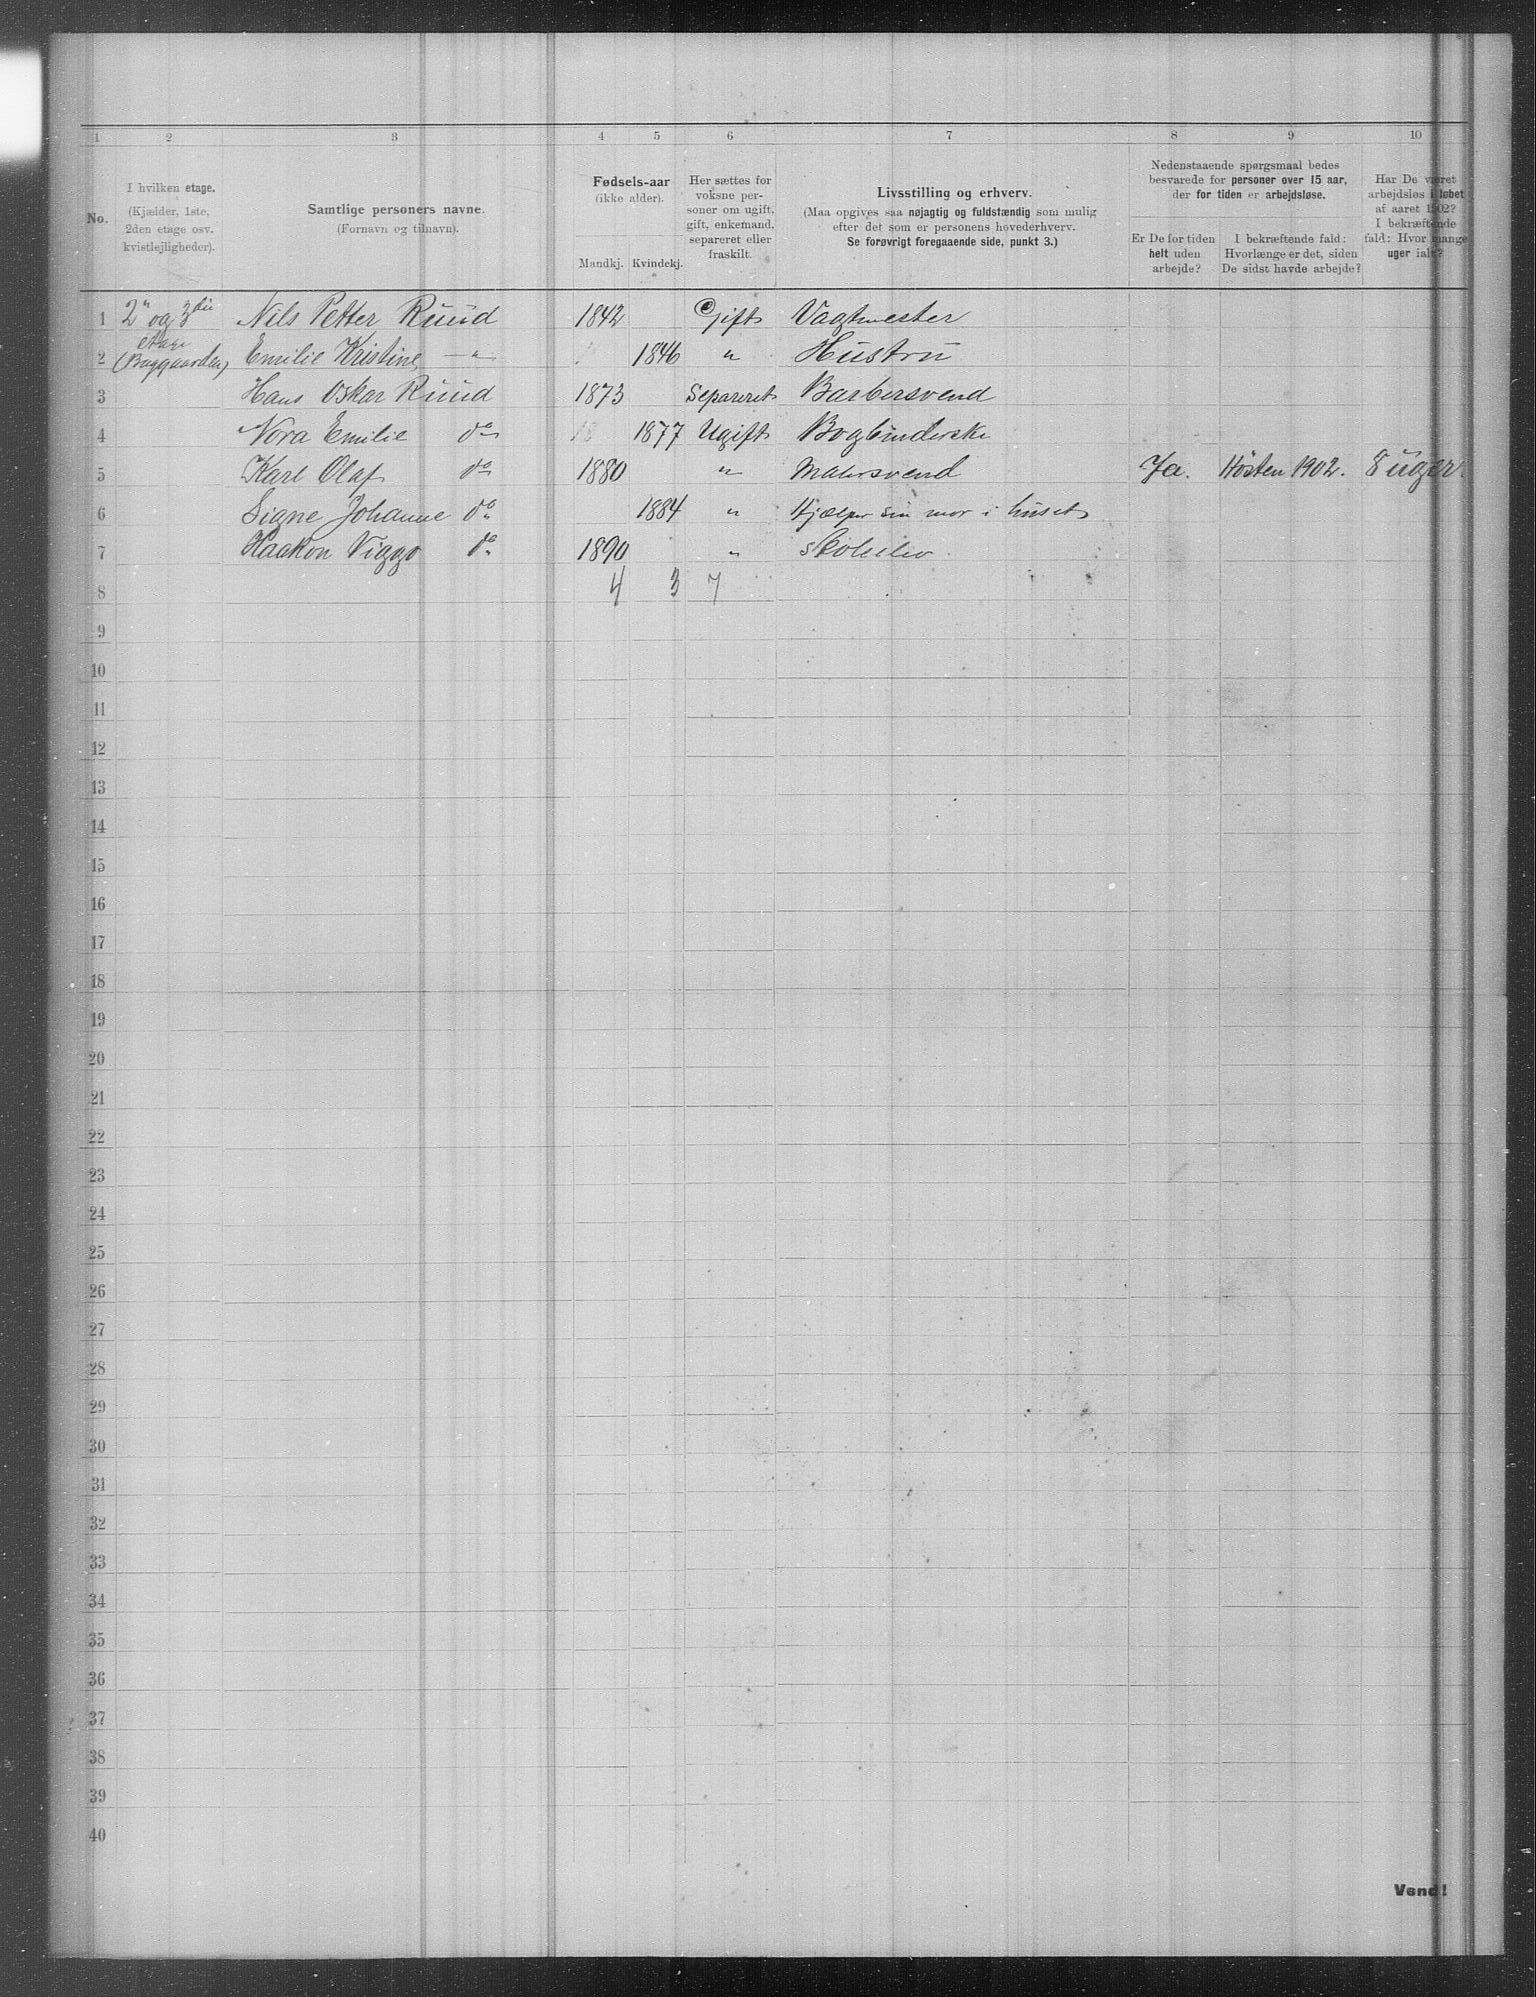 1 2 3 4 5 6 7 8 9 10
No.
I hvilken etage.
(Kjælder, 1ste,
2den etage osv.
kvistlejligheder).
Samtlige personers navne.
(Fornavn og tilnavn).
Fødsels-aar
(ikke alder).
Mandkj. Kvindekj.
Her sættes for
voksne per-
soner om ugift,
gift, enkemand,
separeret eller
fraskilt.
Livsstilling og erhverv.
(Maa opgives saa nøjagtig og fuldstændig som mulig
efter det som er personens hovederhverv.
Se forøvrigt foregaaende side, punkt 3.)
Nedenstaaende spørgsmaal bedes
besvarede for personer over 15 aar,
der for tiden er arbejdsløse.
Er De for tiden
helt uden
arbejde?
I bekræftende fald:
Hvorlænge er det, siden
De sidst havde arbejde?
Har De været
arbejdsløs i løbet
af aaret 1902?
I bekræftende
fald: Hvor mange
uger ialt?
1 2" og 3die Nils Petter Ruud 1842 Gift Vagtmester
etage
2 (Baggaarden) Emilie Kristine —"— 1846 " Hustru
3 Hans Oskar Ruud 1873 Separeret Barbersvend
4 Nora Emilie do 18 1877 Ugift Bogbinderske
5 Karl Olaf do 1880 " Malersvend Ja. Høsten 1902. 8 uger.
6 Signe Johanne do 1884 " Hjælper sin mor i huset
7 Haakon Viggo do 1890 " Skoleelev
8 4 3 7
9
10
11
12
13
14
15
16
17
18
19
20
21
22
23
24
25
26
27
28
29
30
31
32
33
34
35
36
37
38
39
40
Vend!